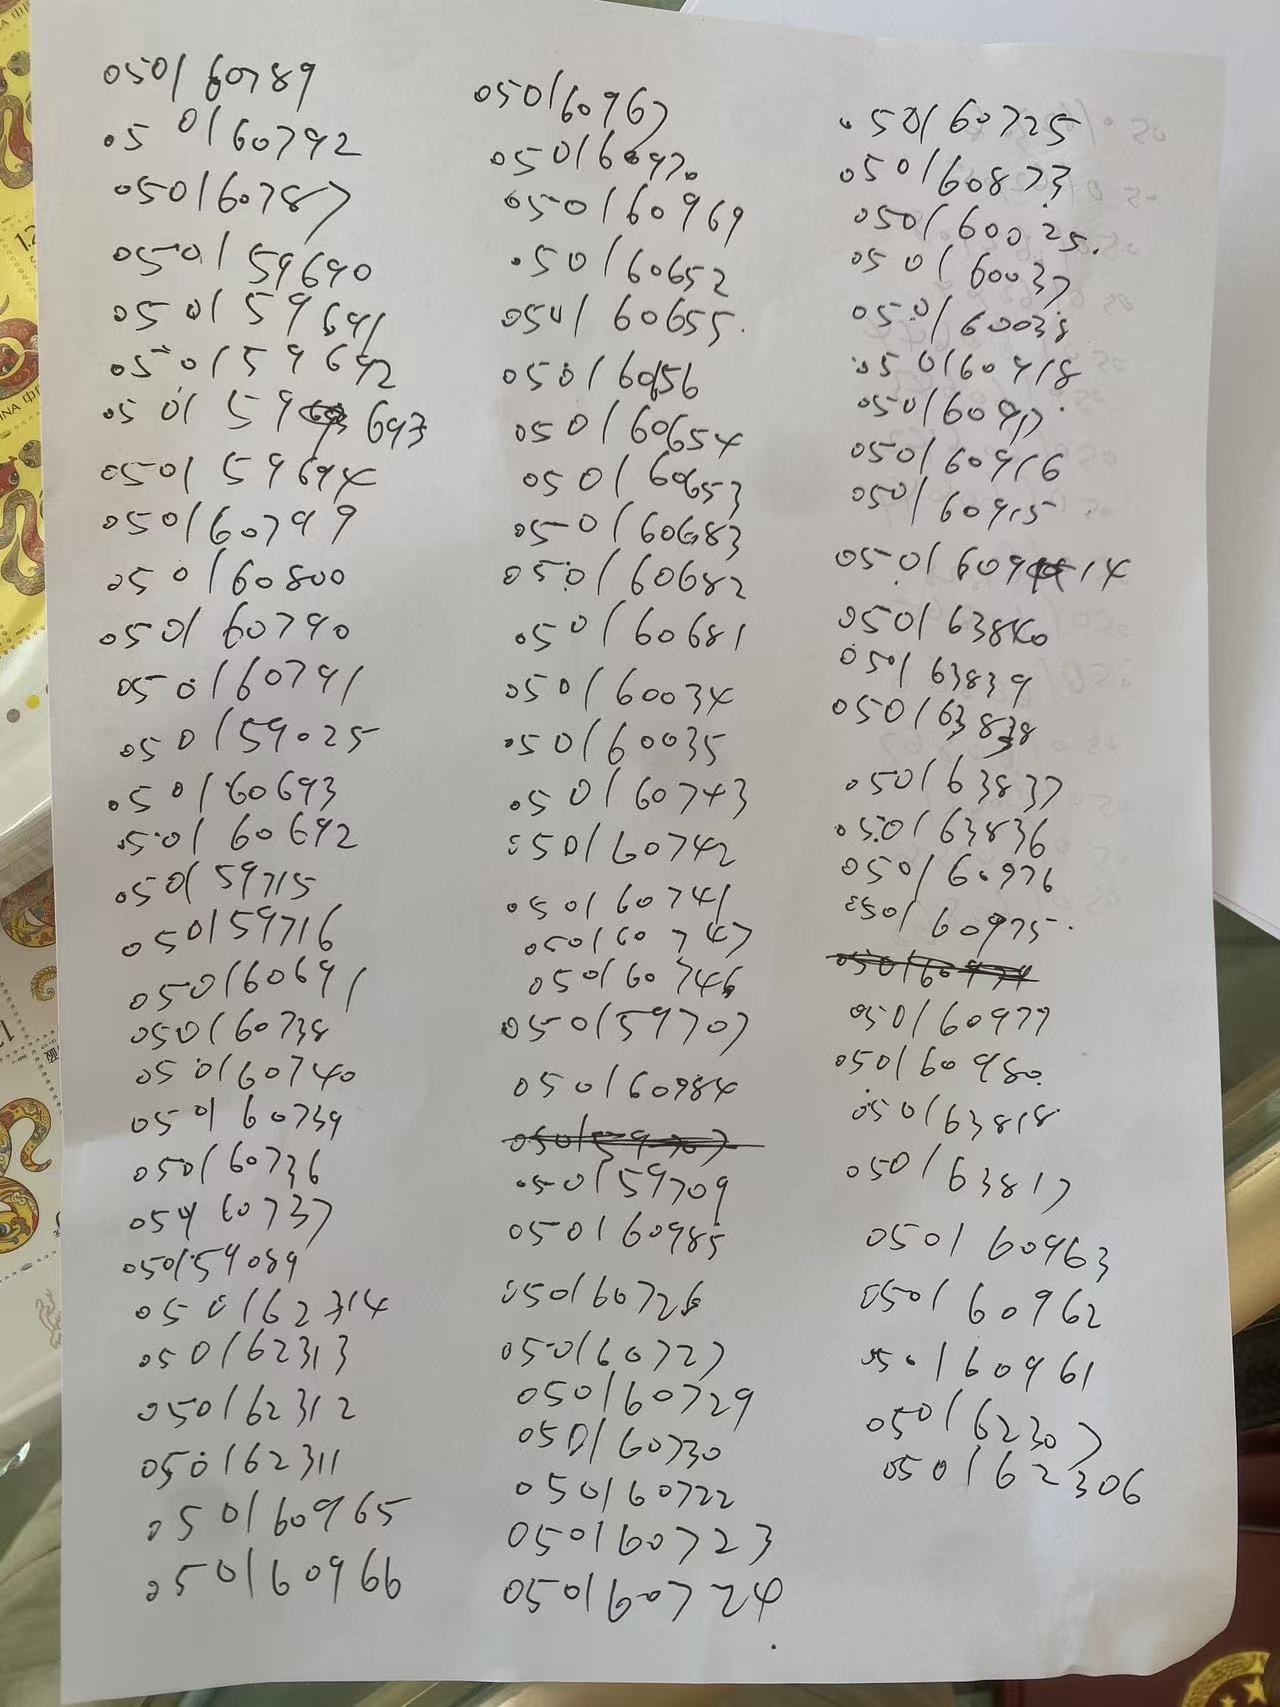 050160789
050160792
050160787
050159690
050159691
050159692
050159693
050159694
050160799
050160800
050160790
050160791
050159025
050160693
050160692
050159715
050159716
050160691
050160738
050160740
050160739
050160736
050160737
050159089
050162314
050162313
050162312
050162311
050160965
050160966
050160967
050160970
050160969
050160652
050160655
050160656
050160654
050160653
050160683
050160682
050160681
050160034
050160035
050160743
050160742
050160741
050160747
050160746
050159707
050160984
050159707
050159709
050160985
050160726
050160727
050160729
050160730
050160722
050160723
050160724
050160725
050160873
050160025
050160037
050160038
050160918
050160917
050160916
050160915
050160914
050163840
050163839
050163838
050163837
050163836
050160976
050160975
050160977
050160980
050163818
050163817
050160963
050160962
050160961
050162307
050162306